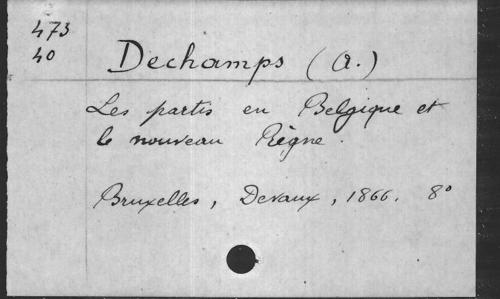 473
40
Dechamps (A.)
Les partis en Belgique et
le nouveau Règne.
Bruxelles, Devaux, 1866. 8°